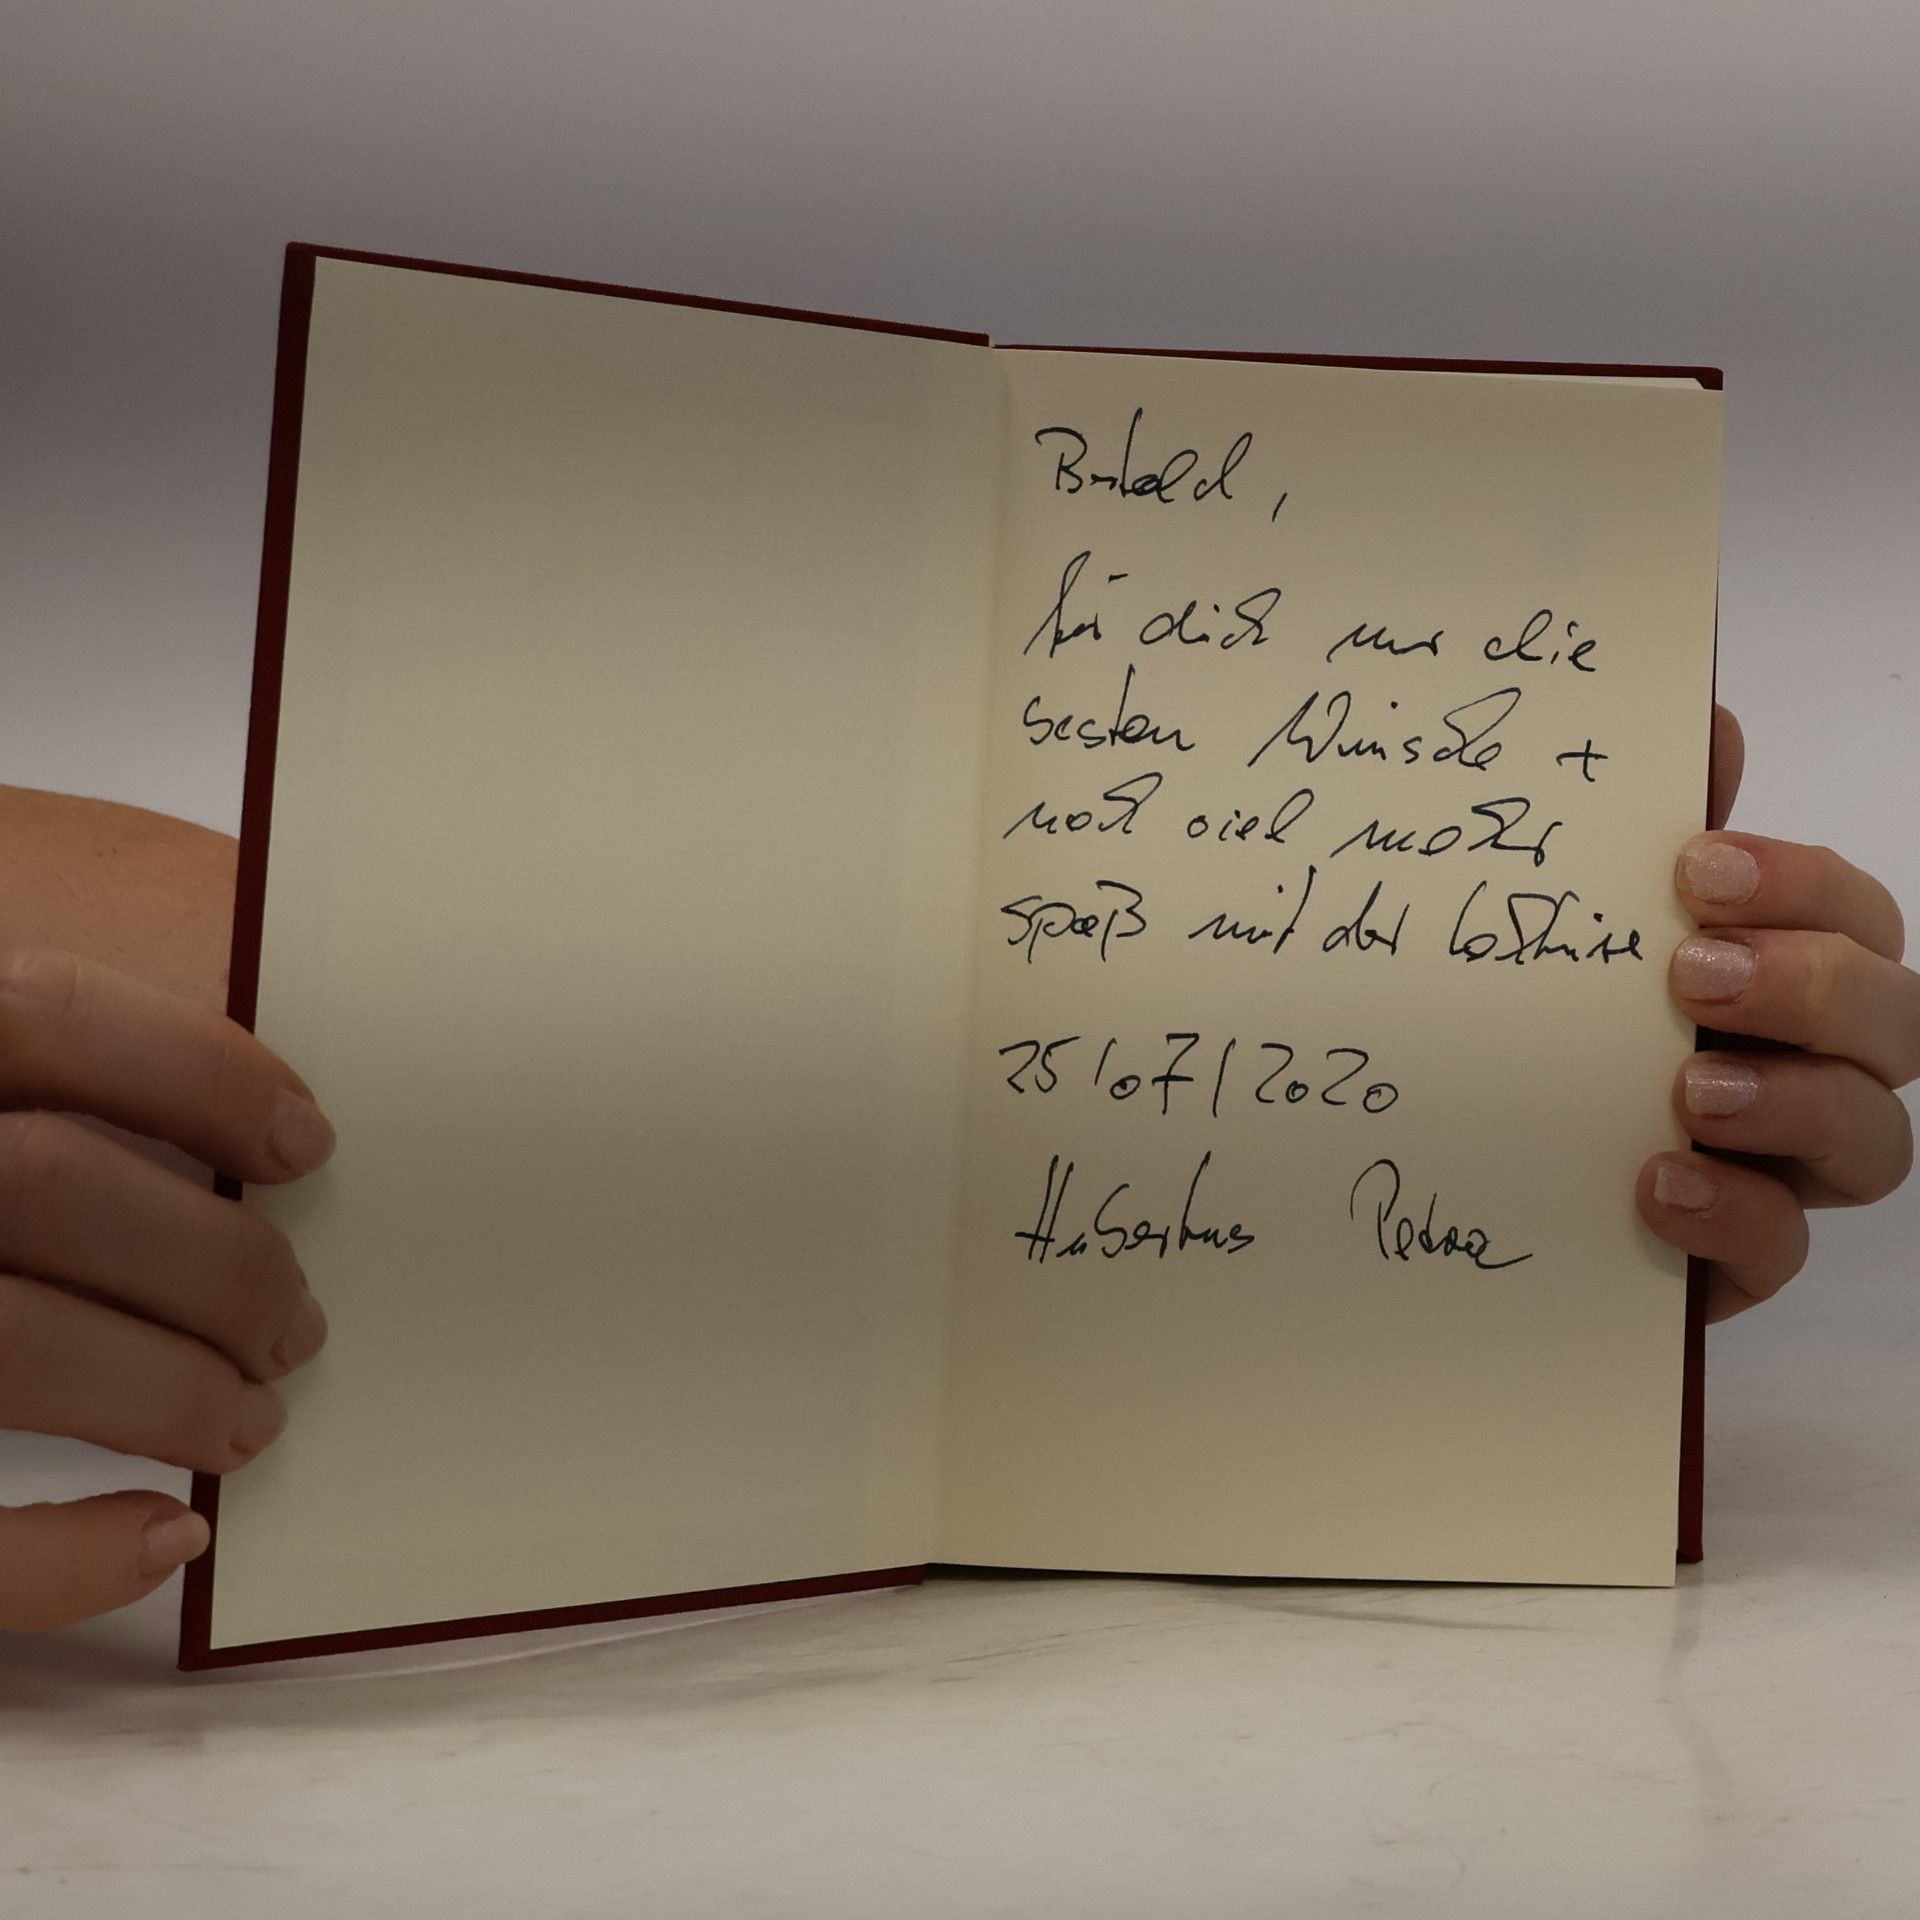 Bertold,
für dich nur die
besten Wünsche +
noch viel mehr
Spaß mit der
25/07/2020
Hubertus Petra